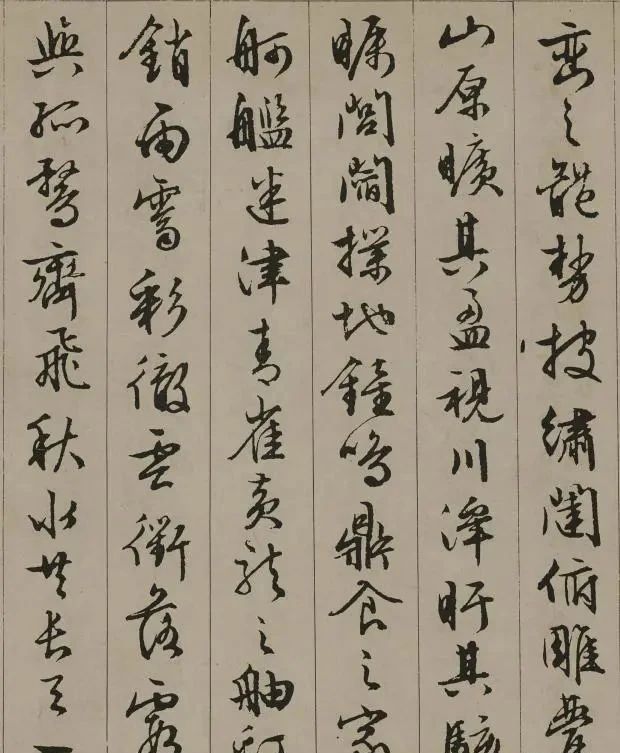 巒之體勢披繡闥俯雕甍
山原曠其盈視川澤盱其駭
矚閭閻撲地鐘鳴鼎食之家
舸艦迷津青雀黃龍之舳虹
銷雨霽彩徹雲衢落霞
與孤鶩齊飛秋水共長天一